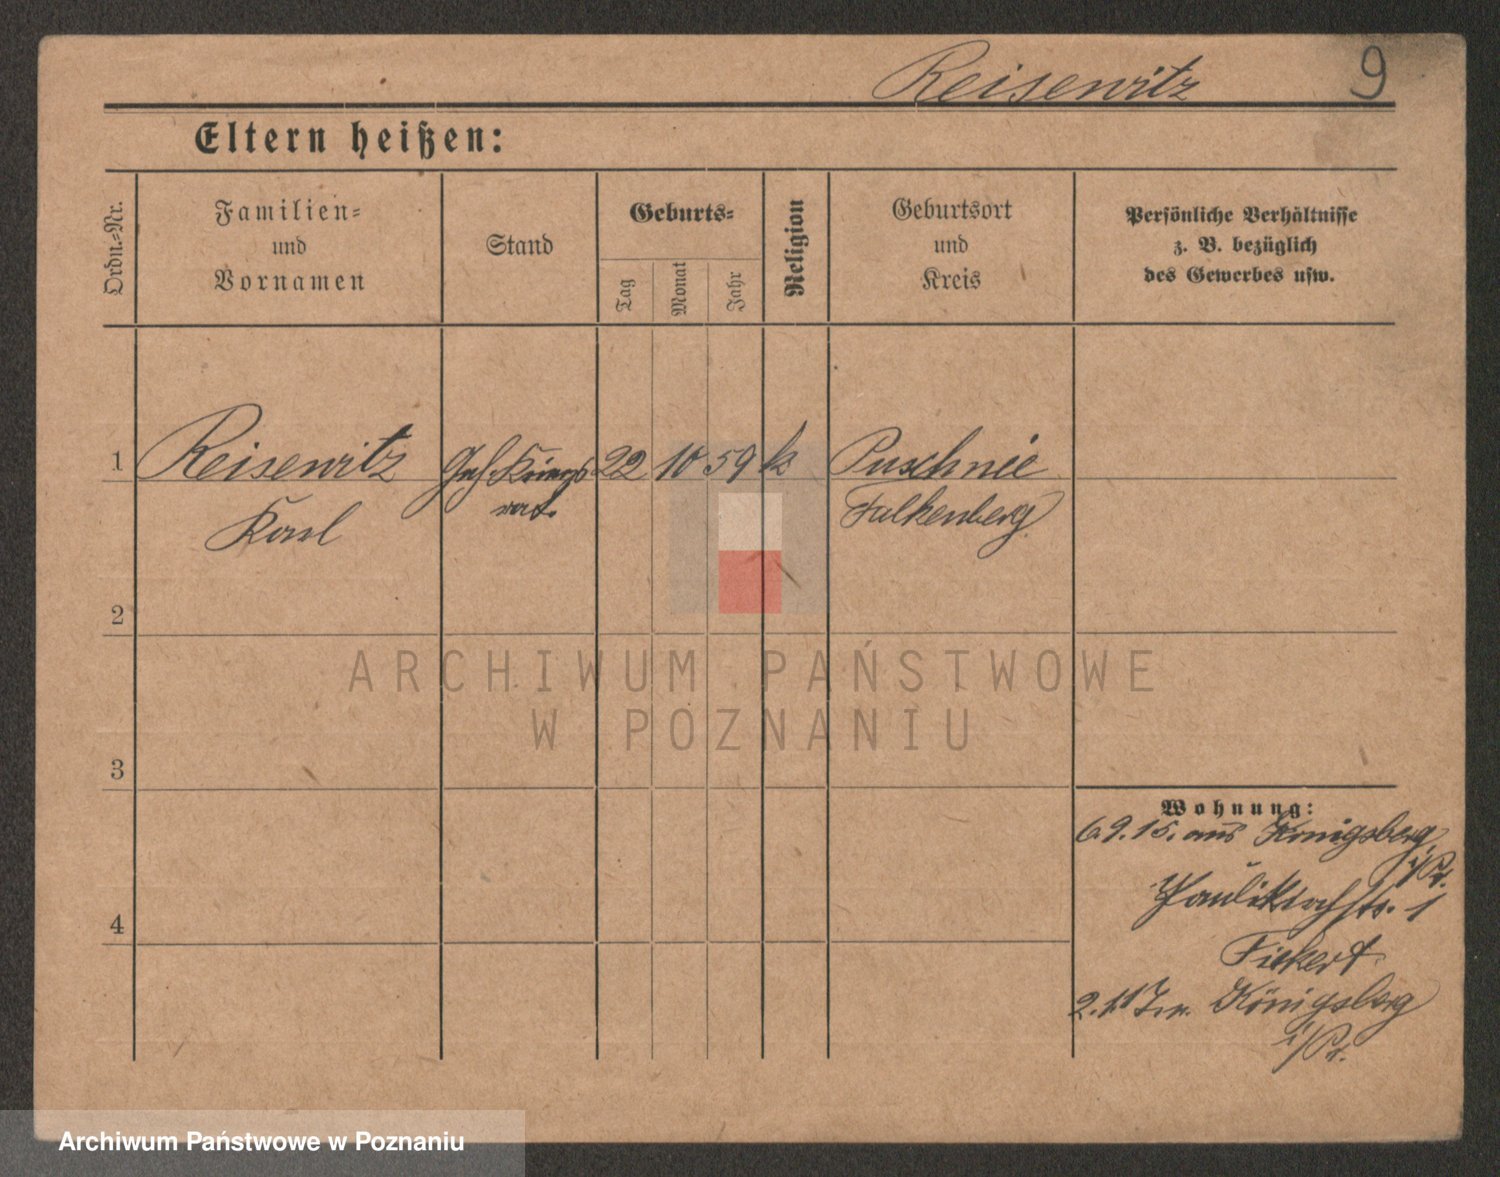 Reisewitz 9
Eltern heißen:
Ordn.-Nr.
Familien-
und
Vornamen
Stand
Geburts-
Tag
Monat
Jahr
Religion
Geburtsort
und
Kreis
Persönliche Verhältnisse
z. B. bezüglich
des Gewerbes usw.
1 Reisewitz Geh. Kriegs 22 10 59 k Puschnie
Karl rat. Falkenberg
2
3
4
Wohnung:
6.9.15. aus Königsberg
i/Pr.
Paulikirchstr. 1
Fiekert
2. 11 Königsberg
i/Pr.
ARCHIWUM PAŃSTWOWE
W POZNANIU
Archiwum Państwowe w Poznaniu